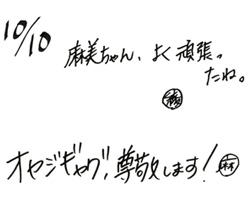 10/10
麻美ちゃん、よく頑張っ
たね。
オヤジギャグ、尊敬します!麻